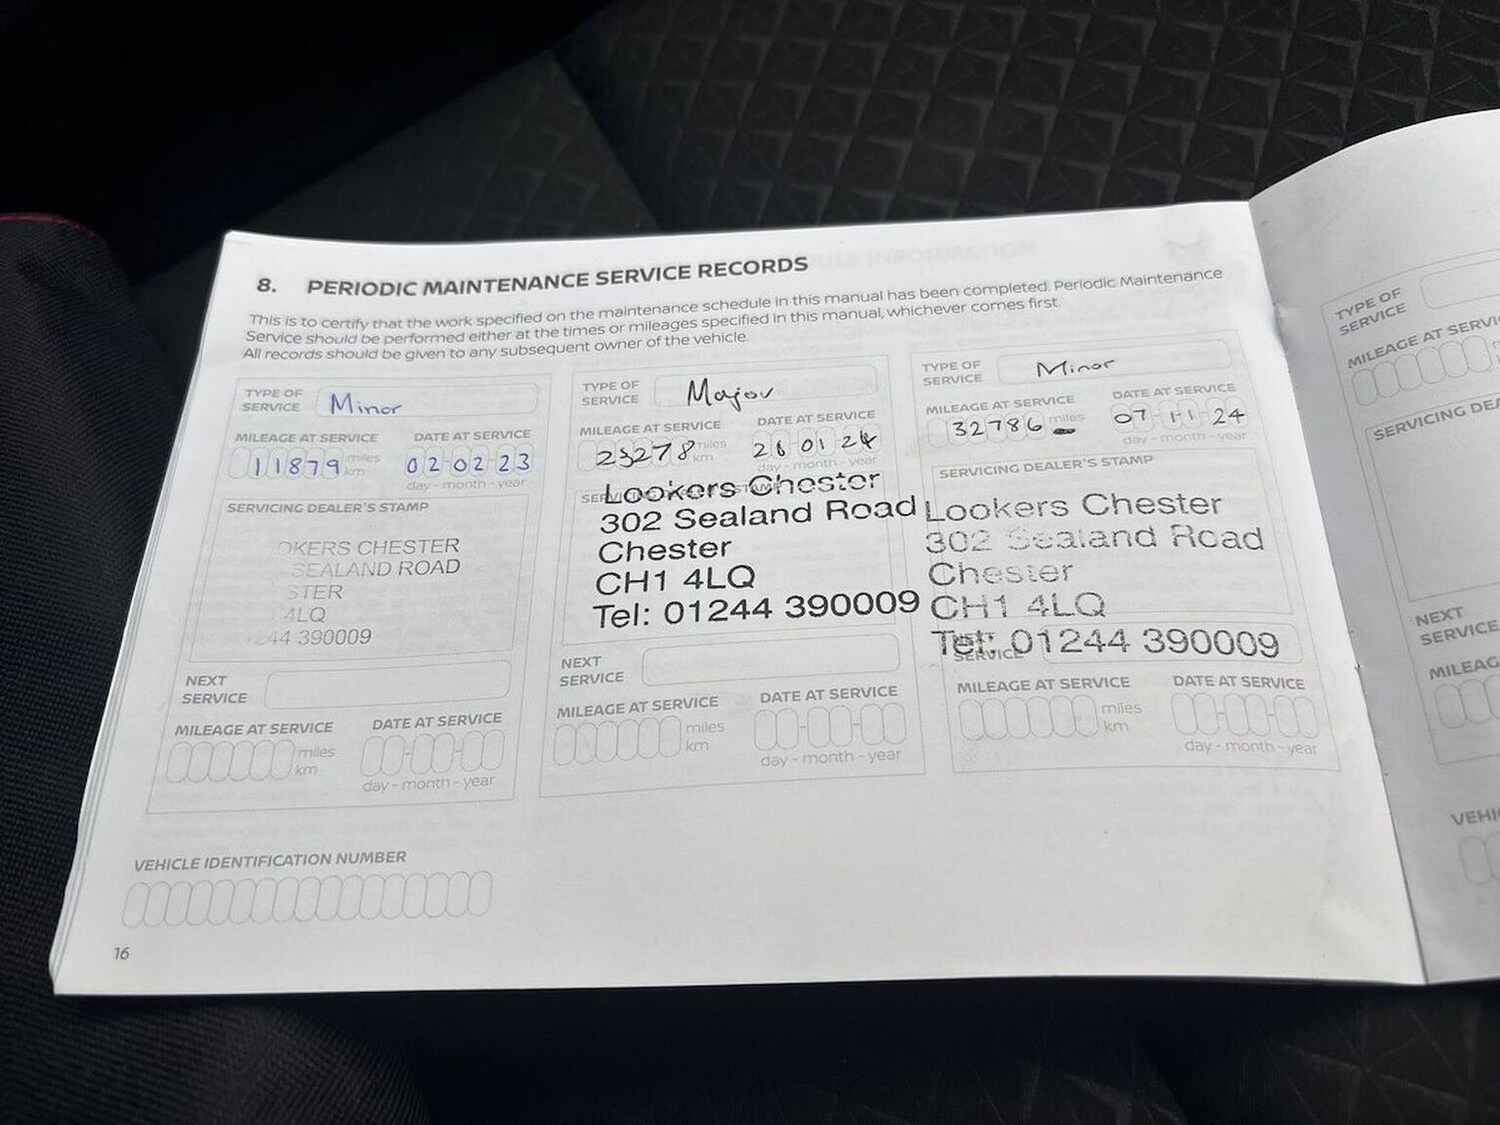 8. PERIODIC MAINTENANCE SERVICE RECORDS
This is to certify that the work specified on the maintenance schedule in this manual has been completed. Periodic Maintenance
Service should be performed either at the times or mileages specified in this manual, whichever comes first.
All records should be given to any subsequent owner of the vehicle.
TYPE OF SERVICE Minor
MILEAGE AT SERVICE DATE AT SERVICE
11879 miles km 02-02-23
day - month - year
SERVICING DEALER'S STAMP
OKERS CHESTER
SEALAND ROAD
STER
4LQ
44 390009
NEXT SERVICE
MILEAGE AT SERVICE DATE AT SERVICE
miles km
day - month - year
TYPE OF SERVICE Major
MILEAGE AT SERVICE DATE AT SERVICE
23278 miles km 26-01-24
day - month - year
Lookers Chester
302 Sealand Road
Chester
CH1 4LQ
Tel: 01244 390009
NEXT SERVICE
MILEAGE AT SERVICE DATE AT SERVICE
miles km
day - month - year
TYPE OF SERVICE Minor
MILEAGE AT SERVICE DATE AT SERVICE
32786 miles 07-11-24
day - month - year
SERVICING DEALER'S STAMP
Lookers Chester
302 Sealand Road
Chester
CH1 4LQ
Tel: 01244 390009
SERVICE
MILEAGE AT SERVICE DATE AT SERVICE
miles km
day - month - year
VEHICLE IDENTIFICATION NUMBER
16
TYPE OF SERVICE
MILEAGE AT SERVI
SERVICING DEA
NEXT SERVICE
MILEAG
VEHI